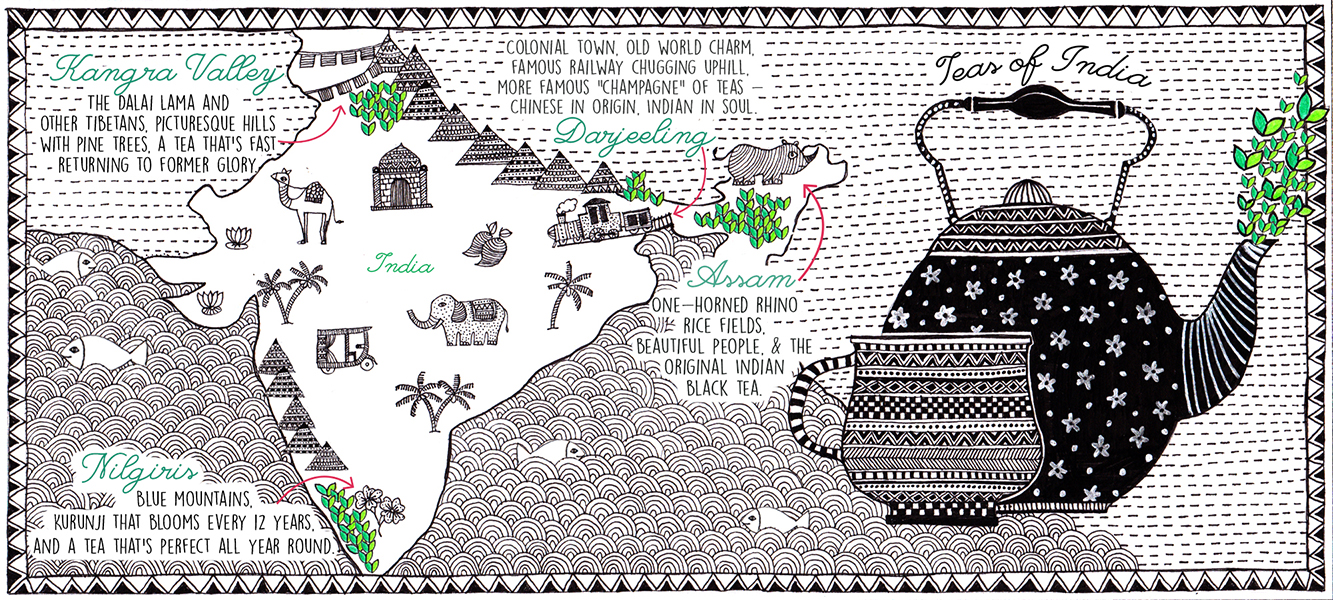 Teas of India
Kangra Valley
THE DALAI LAMA AND
OTHER TIBETANS, PICTURESQUE HILLS
WITH PINE TREES, A TEA THAT'S FAST
RETURNING TO FORMER GLORY.
COLONIAL TOWN, OLD WORLD CHARM,
FAMOUS RAILWAY CHUGGING UPHILL,
MORE FAMOUS "CHAMPAGNE" OF TEAS –
CHINESE IN ORIGIN, INDIAN IN SOUL.
Darjeeling
India
Assam
ONE-HORNED RHINO
RICE FIELDS,
BEAUTIFUL PEOPLE, & THE
ORIGINAL INDIAN
BLACK TEA.
Nilgiris
BLUE MOUNTAINS,
KURUNJI THAT BLOOMS EVERY 12 YEARS,
AND A TEA THAT'S PERFECT ALL YEAR ROUND.